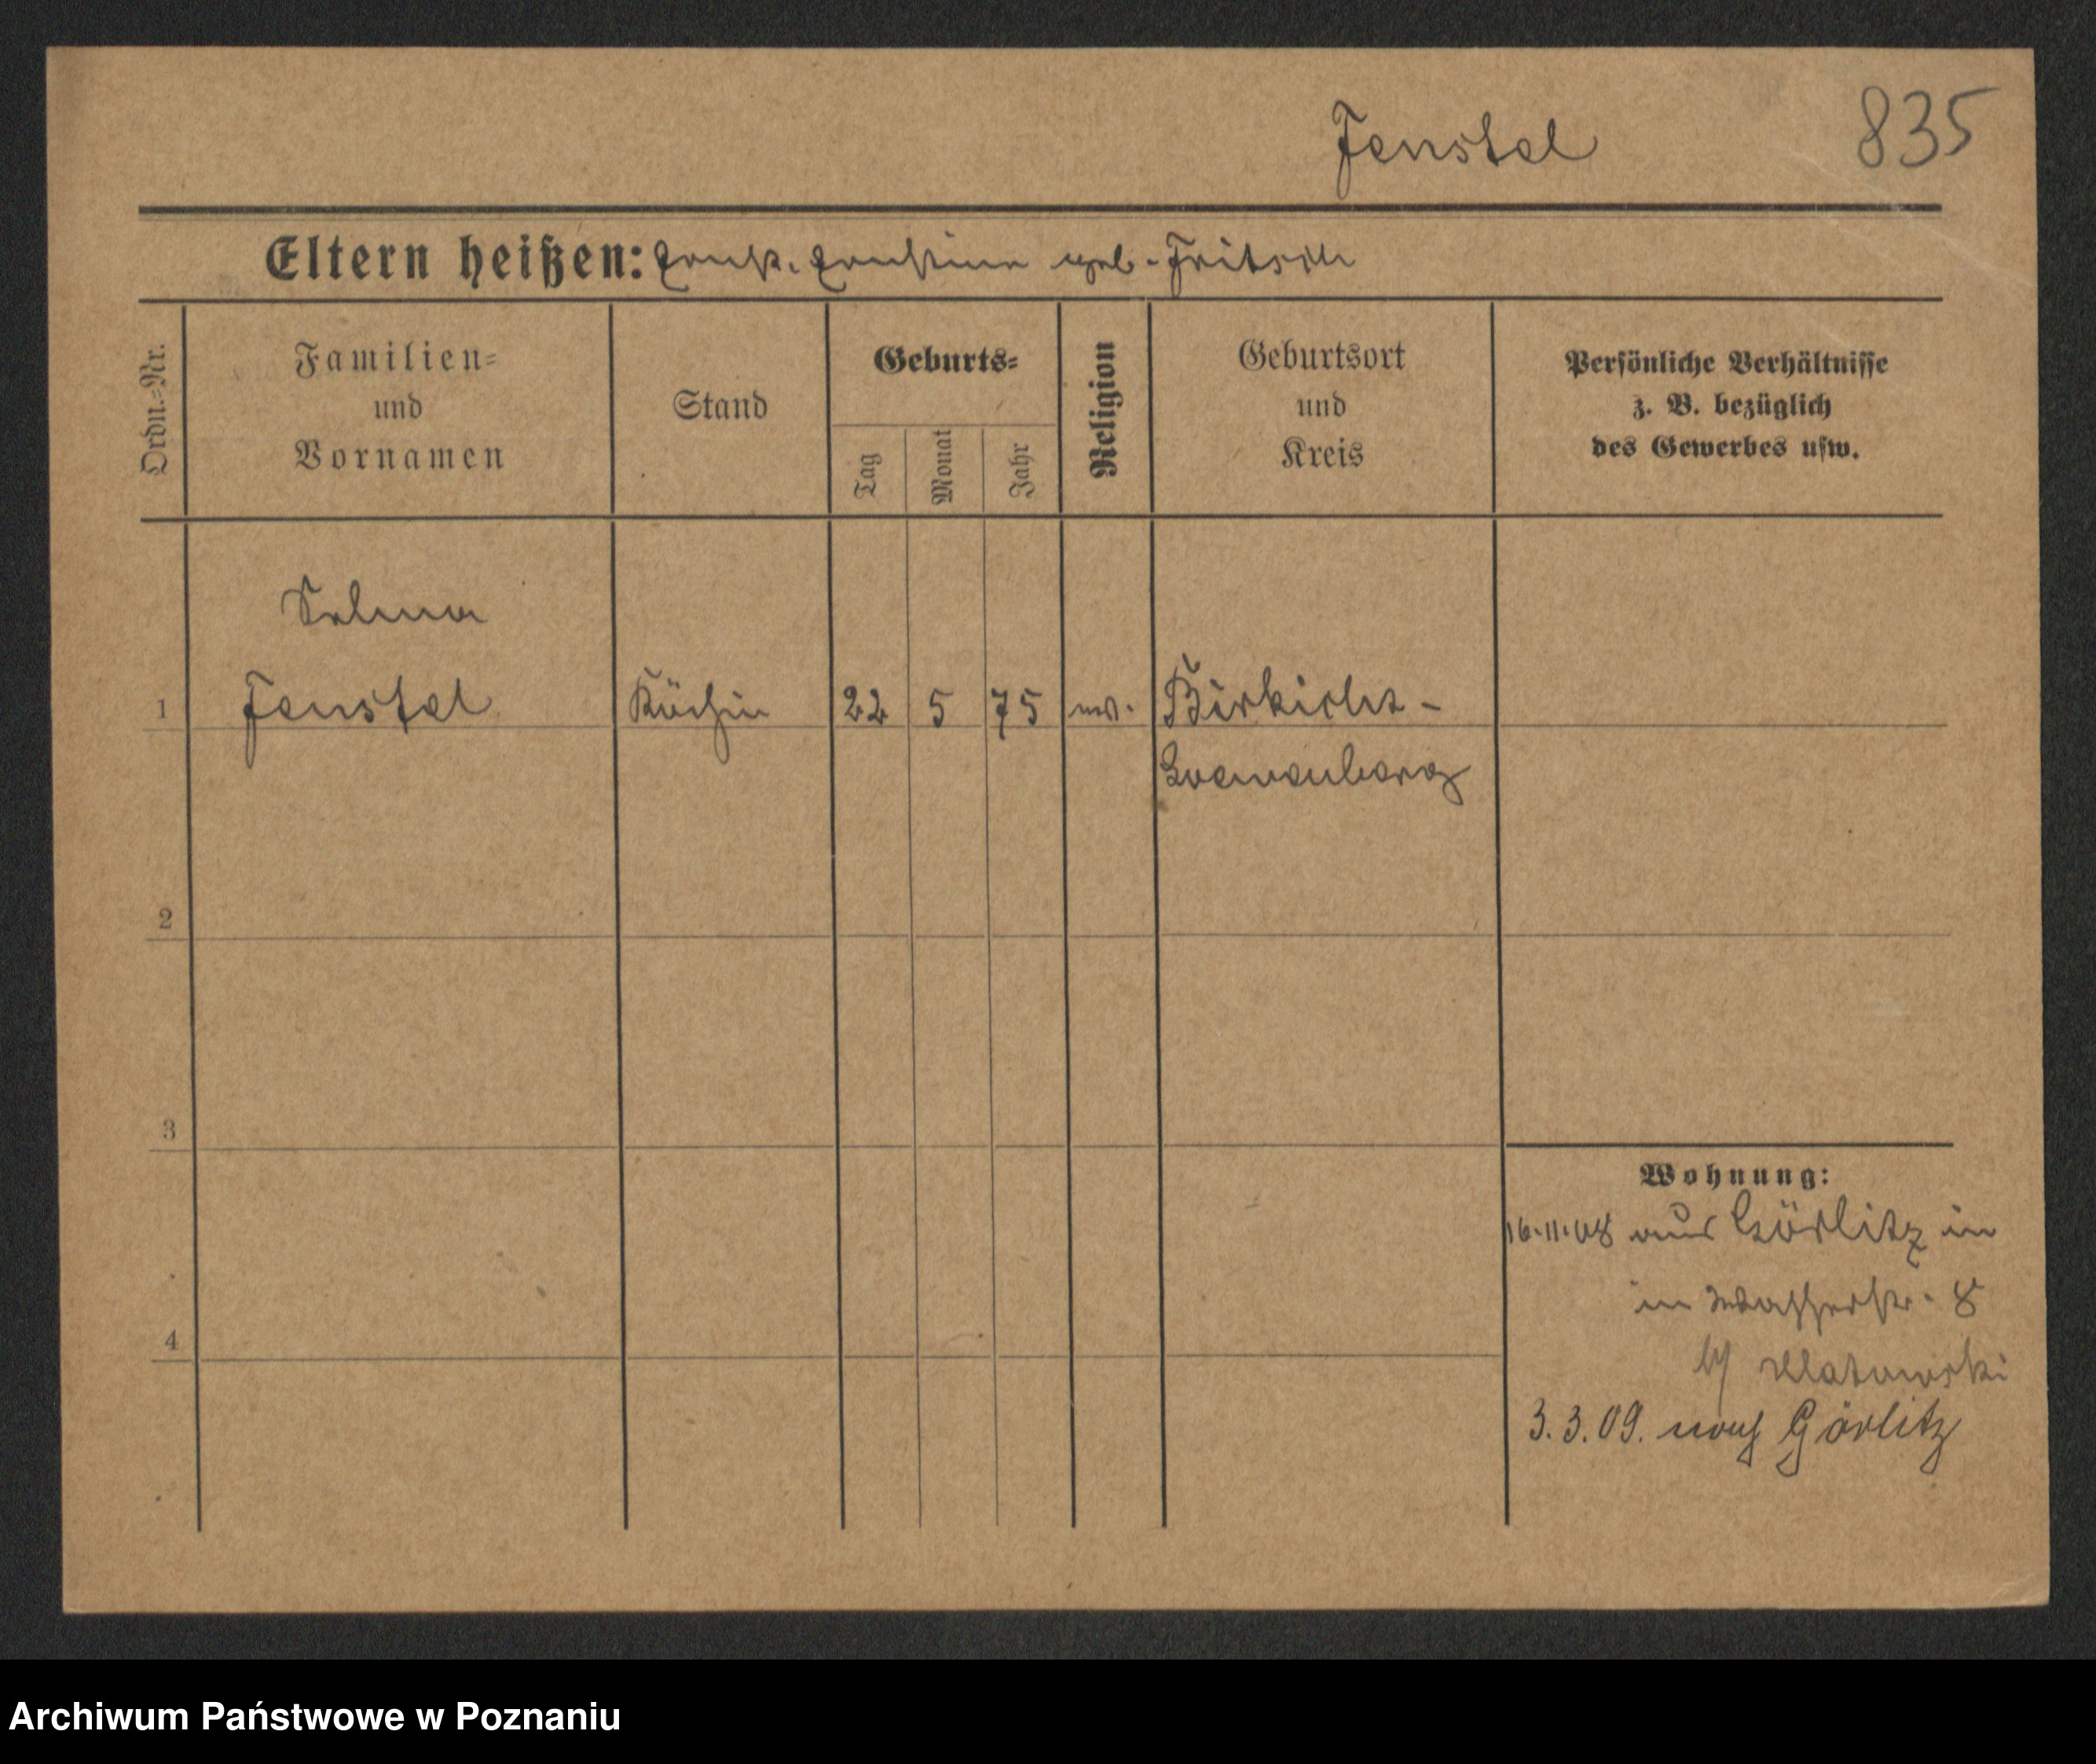 Fenstel 835
Eltern heißen: Ernst. Ernstine geb. Fritsch
Ordn.-Nr.
Familien=
und
Vornamen
Stand
Geburts=
Tag
Monat
Jahr
Religion
Geburtsort
und
Kreis
Persönliche Verhältnisse
z. B. bezüglich
des Gewerbes usw.
Selma
1 Fenstel Köchin 22 5 75 ev. Birkicht-
Loewenberg
2
3
4
Wohnung:
16.11.08 aus Görlitz in
in Wasserstr. 8
b/ Matowski
3.3.09. nach Görlitz
Archiwum Państwowe w Poznaniu